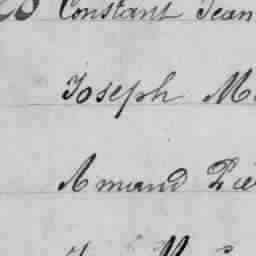 Constant Jean
Joseph M
Amand Pie